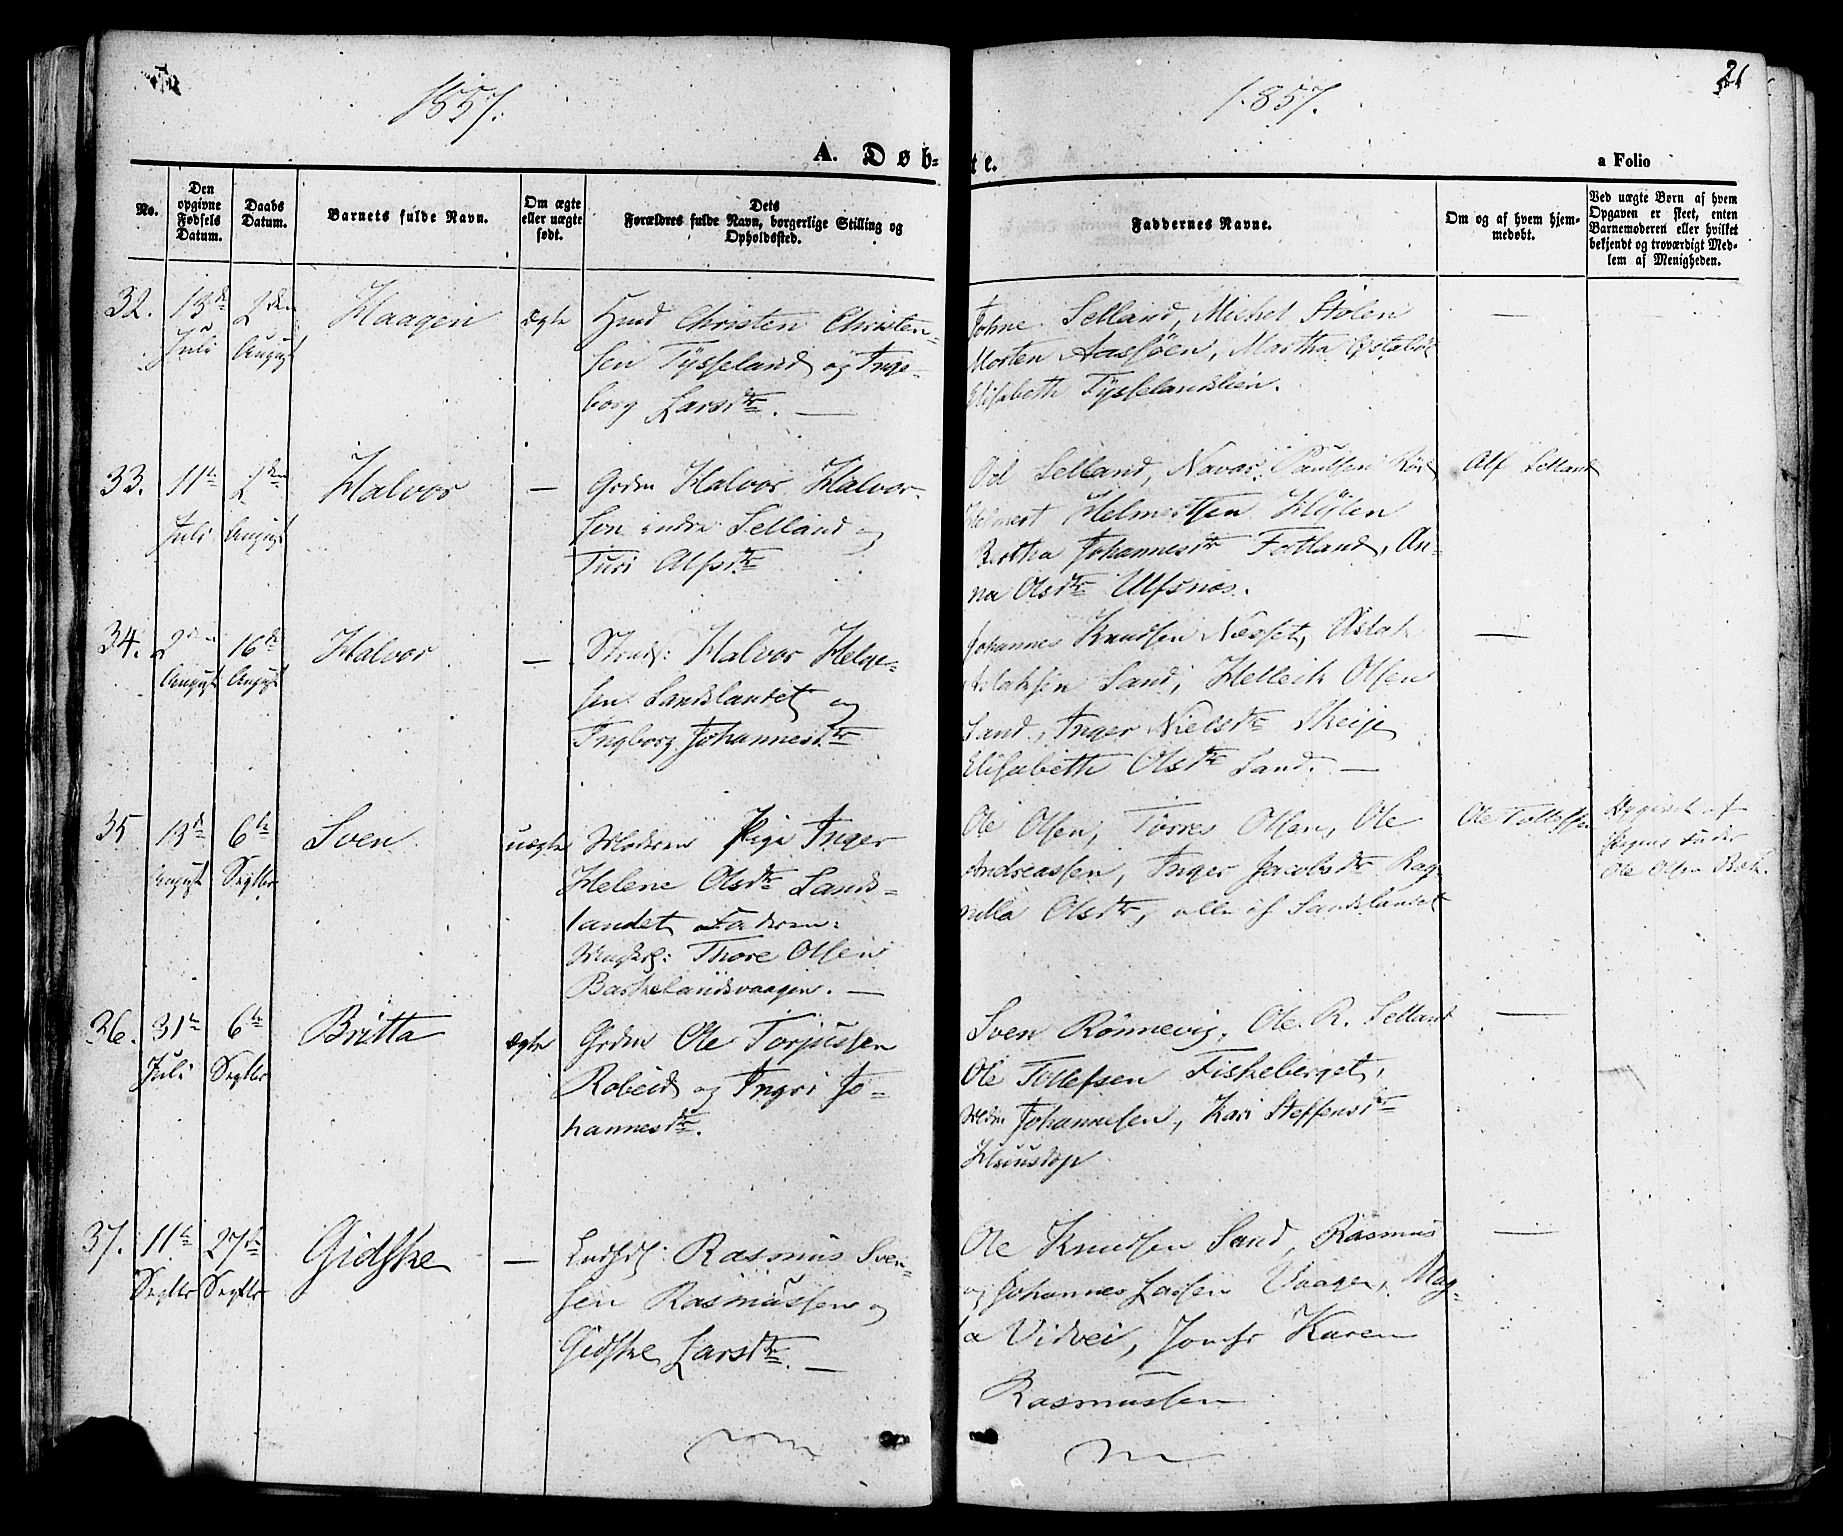 1857.
1857.
21
A. Døb-
te.
a Folio
No.
Den opgivne Fødsels Datum.
Daabs Datum.
Barnets fulde Navn.
Om ægte eller uægte født.
Dets
Forældres fulde Navn, borgerlige Stilling og
Opholdssted.
Faddernes Navne.
Om og af hvem hjem-
medøbt.
Ved uægte Børn af hvem
Opgaven er skeet, enten
Barnemoderen eller hvilket
bekjendt og troværdigt Med-
lem af Menigheden.
32. 13de Juli 2den August Haagen ægte
Christen Christen-
sen Tysseland og Inge-
borg Larsdtr. —
Johne Selland, Michel Stölen
Morten Aasföen, Martha Östabö
Elisabeth Tysselandslien.
—
33. 11te Juli 2den August Halvor —
Grdm Halvor Halvor-
sen indre Selland og
Turi Alfsdtr
Od Selland, Navar Paulsen
Helmert Helmertsen Hylen
Bertha Johannesdtr Fotland, An-
na Olsdtr Ulfsnæs.
Alf Selland
34. 2den August 16de August Halvor —
Strads: Halvor Helge-
sen Sandslandet og
Ingborg Johannesdtr
Johannes Knudsen Nesset, Aslak
Aslaksen Sand, Helleik Olsen
Sand, Inger Nielsdtr Skeije
Elisabeth Olsdtr Sand. —
—
35 13de August 6te Septbr Sven uægte
Moderen Pige Inger
Helene Olsdtr Sands-
landet Faderen:
Ungkrl: Thore Olsen
Barkelandsvaagen. —
Ole Olsen, Törres Olsen, Ole
Andreassen, Inger Jacobsdtr Rag-
nilla Olsdtr, alle af Sandslandet
Ole Tollefsen
Opgivet af
Pigens Fader
Ole Olsen
36. 31te Juli 6te Septbr Britta ægte
Grdm Ole Torjussen
Robeid og Ingri Jo-
hannesdtr.
Sven Rönnevig, Ole R. Selland
Ole Tollefsen Fiskeberget,
Johannesen, Kari Steffensdtr
—
37. 11te Septbr 27de Septbr Gidske —
Rasmus Sven-
sen Rasmussen og
Gidske Larsdtr. —
Ole Knudsen Sand, Rasmus
og Johannes Larsen Vaagen, Mag-
la Vidvei, Jomfr Karen
Rasmussen
—